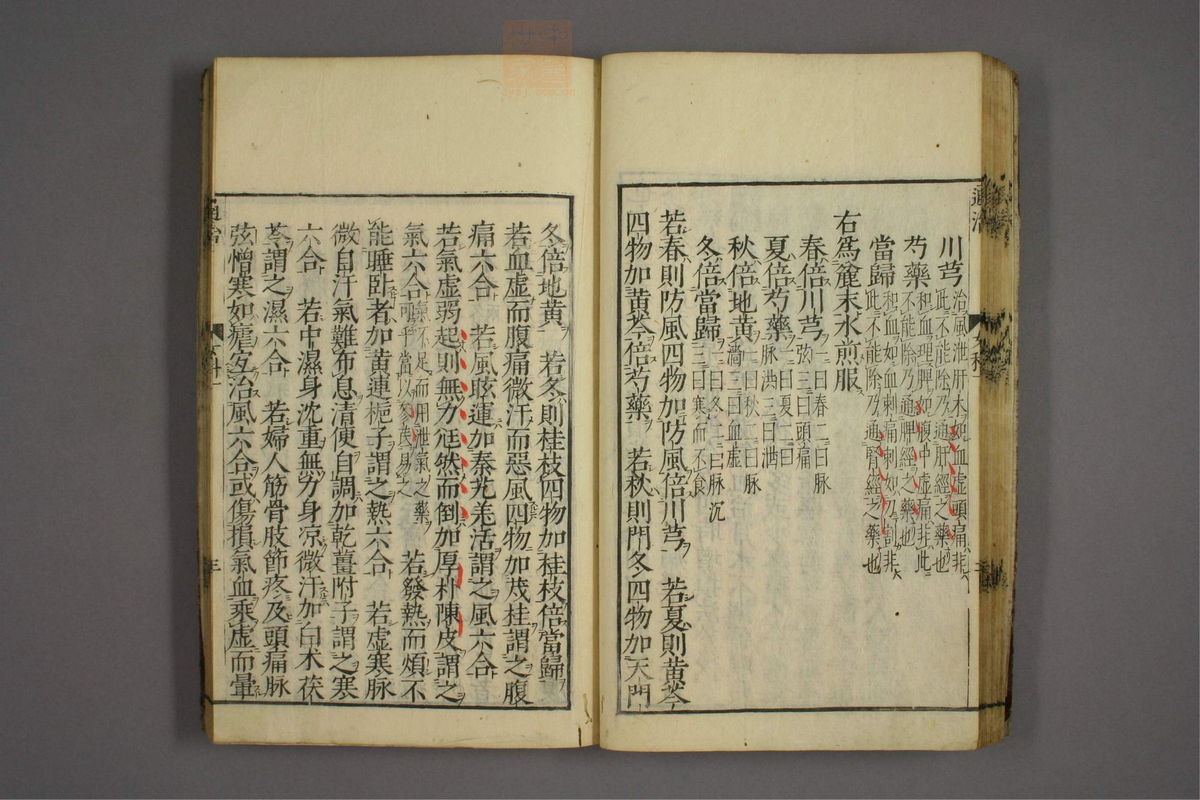 川芎治風泄肝木如血虛頭痛非
此不能除乃通肝經之藥也
芍藥和血理脾如腹中虛痛非此
不能除乃通脾經之藥也
當歸和血如血刺痛刺如刀割非
此不能除乃通腎經之藥也
右爲麄末水煎服
春倍川芎一曰春二曰脉
弦三曰頭痛
夏倍芍藥一曰夏二曰
脉洪三曰泄
秋倍地黃一曰秋二曰脉
濇三曰血虛
冬倍當歸一曰冬二曰脉沉
三曰寒而不食
若春則防風四物加防風倍川芎 若夏則黃芩
四物加黃芩倍芍藥 若秋則門冬四物加天門
冬倍地黃 若冬則桂枝四物加桂枝倍當歸
若血虛而腹痛微汗而惡風四物加茂桂謂之腹
痛六合 若風眩運加秦艽羌活謂之風六合
若氣虛弱起則無力尩然而倒加厚朴陳皮謂之
氣六合氣不足而用泄氣之藥
可乎當以參芪易之 若發熱而煩不
能睡卧者加黃連梔子謂之熱六合 若虛寒脉
微自汗氣難布息清便自調加乾薑附子謂之寒
六合 若中濕身沈重無力身涼微汗加白术茯
苓謂之濕六合 若婦人筋骨肢節疼及頭痛脉
弦憎寒如瘧宜治風六合或傷損氣血乘虛而暈
通治
三